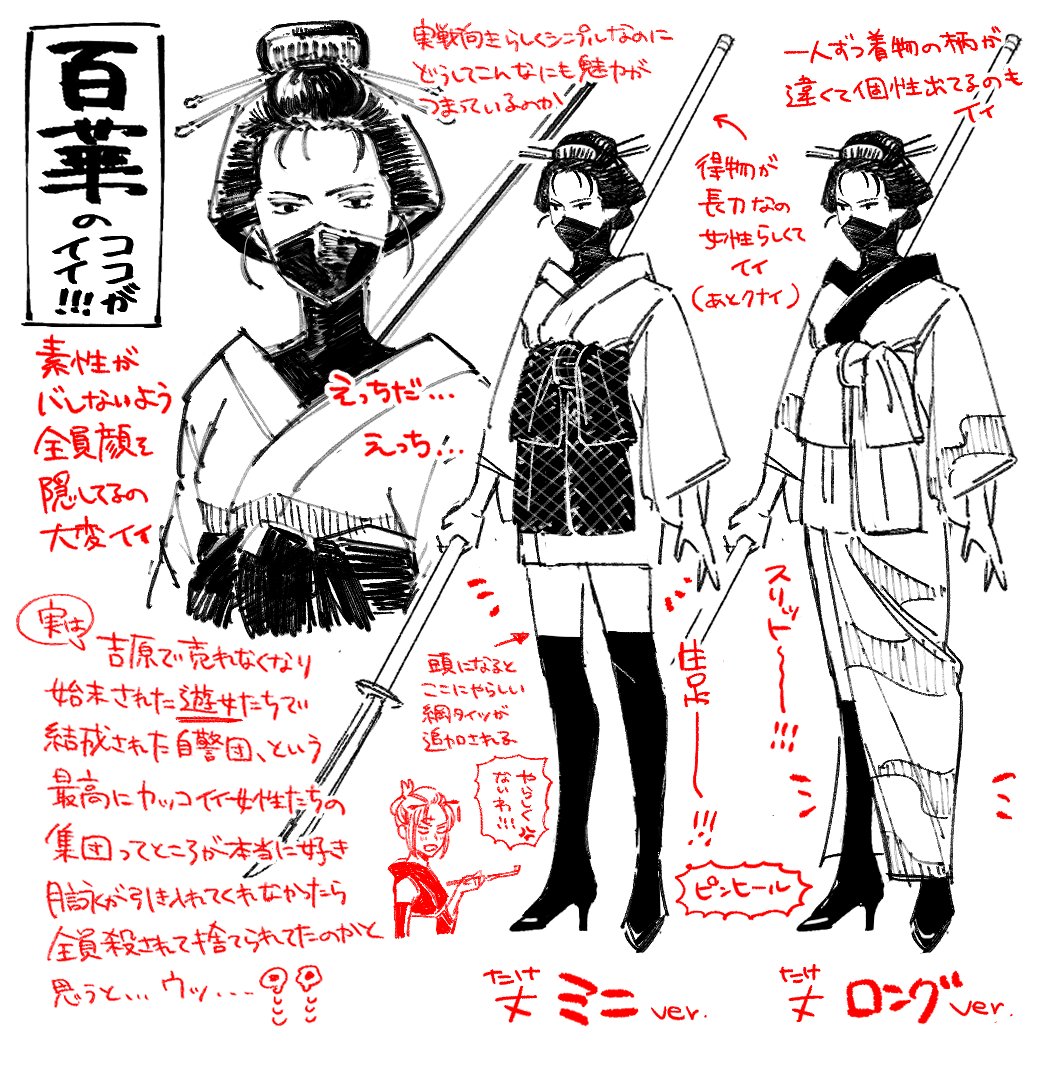 百華の
ココが
イイ!!!
実戦向きらしくシンプルなのに
どうしてこんなにも魅力が
つまっているのか
一人ずつ着物の柄が
違くて個性出てるのも
イイ
得物が
長刀なの
女性らしくて
イイ
(あとクナイ)
素性が
バレないよう
全員顔を
隠してるの
大変イイ
えっちだ…
えっち…
実は
吉原で売れなくなり
始末された遊女たちで
結成された自警団、という
最高にカッコイイ女性たちの
集団ってところが本当に好き
月詠が引き入れてくれなかったら
全員殺されて捨てられてたのかと
思うと... ウッ...
頭になると
ここにやらしい
網タイツが
追加される
やらしく
ないわ!!!
生足——!!!
スリット〜〜!!!
ピンヒール
たけ
丈ミニver.
たけ
丈ロングver.